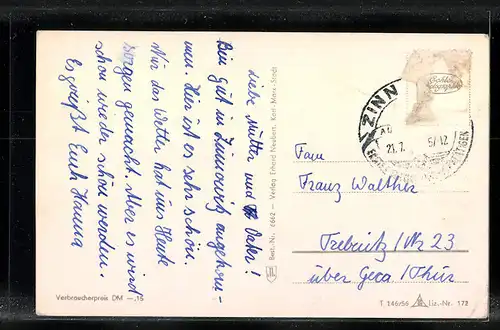 Liebe Mutter und Vater!
Bin gut in Zinnowitz angekom-
men. Hier ist es sehr schön.
Nur das Wetter hat uns Heute
sorgen gemacht. Aber es wird
schon wieder schön werden.
Es grüßt Euch Hanna
Verbraucherpreis DM —,15
Best.-Nr. 6662 — Verlag Erhard Neubert, Karl-Marx-Stadt
ZINN
21.7. 57-12
Fam
Franz Walther
Trebnitz/Nr 23
über Gera/Thür
T 146/56 Liz.-Nr. 173